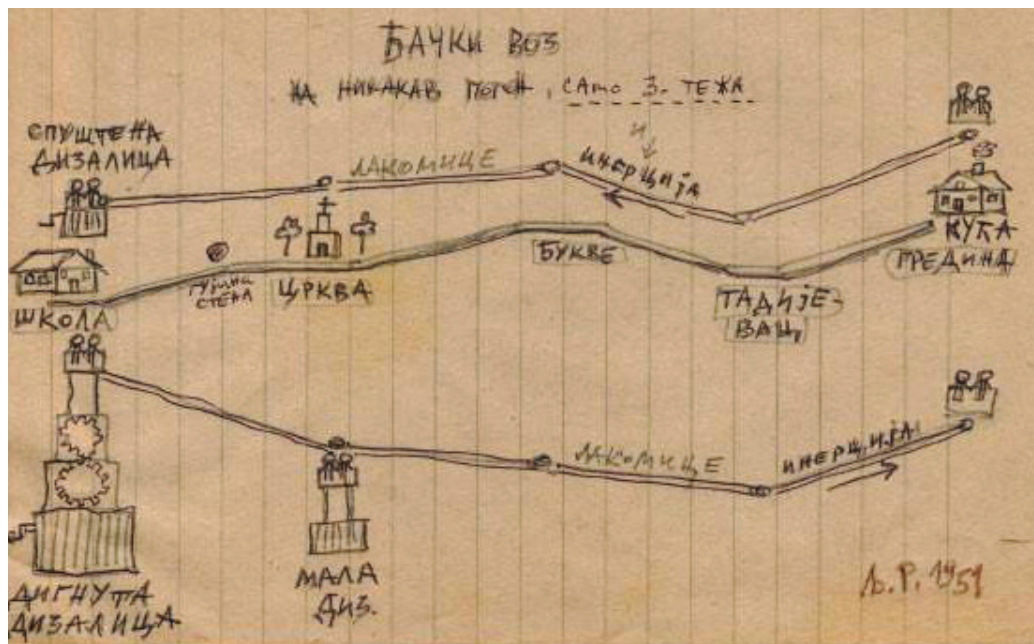 БАЧКИ ВОЗ
НА НИКАКАВ ПОГОН, САМО З. ТЕЖА
СПУШТЕНА
ДИЗАЛИЦА
ЛАКОМИЦЕ
ИНЕРЦИЈА
И
ШКОЛА
СТЕНА
ЦРКВА
БУКВЕ
ТАДИЈЕ-
ВАЦ
КУЋА
ГРЕДИНА
ЛАКОМИЦЕ
ИНЕРЦИЈА
ДИГНУТА
ДИЗАЛИЦА
МАЛА
ДИЗ.
Љ.Р. 1951